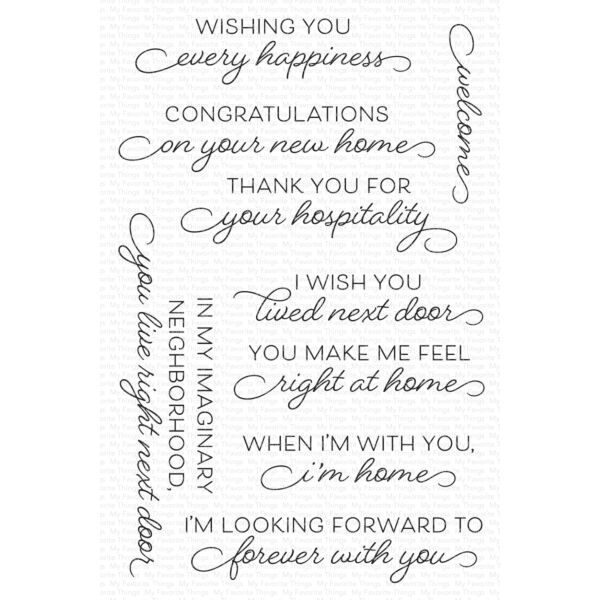 WISHING YOU
every happiness
welcome
CONGRATULATIONS
on your new home
THANK YOU FOR
your hospitality
IN MY IMAGINARY
NEIGHBORHOOD,
you live right next door
I WISH YOU
lived next door
YOU MAKE ME FEEL
right at home
WHEN I'M WITH YOU,
i'm home
I'M LOOKING FORWARD TO
forever with you
My Favorite Things